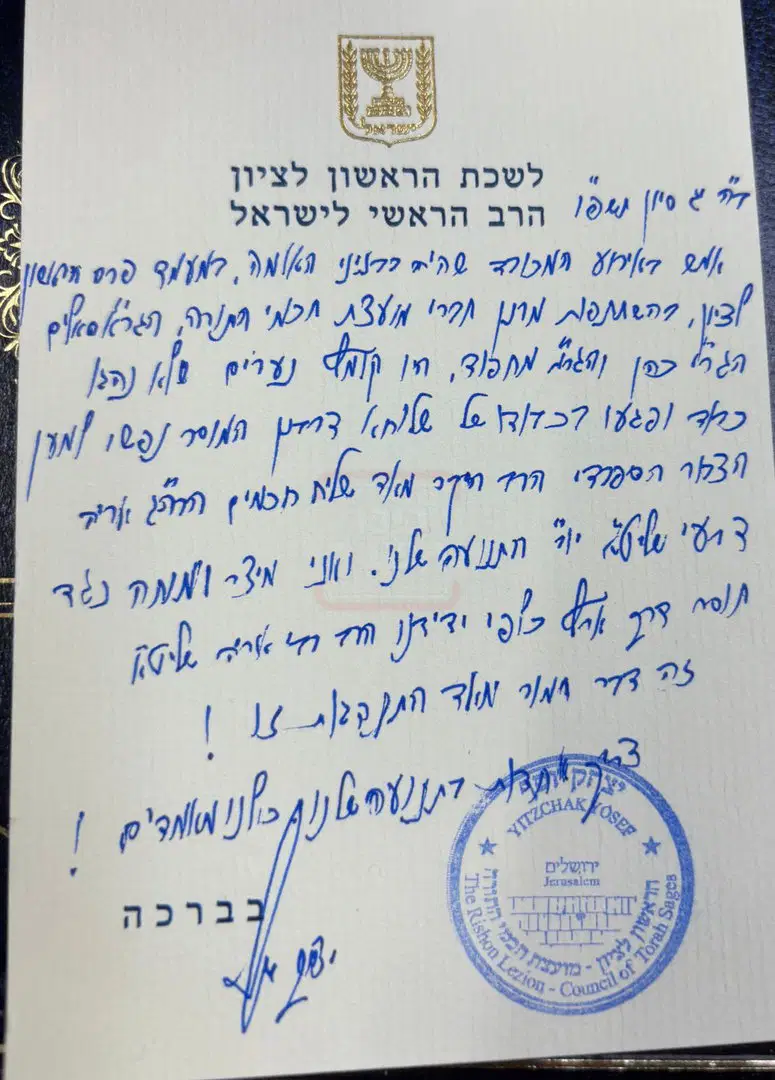 ישראל
לשכת הראשון לציון
הרב הראשי לישראל
ב"ה ג סיון תשפ"ו
אמש באירוע המכובד שהיה בבניני האומה, במעמד פרס הראשון
לציון, בהשתתפות מרנן חברי מועצת חכמי התורה, הגר"א סאלים
הגר"י כהן והגר"ב מחפוד, היו קומץ נערים שלא נהגו
כבוד ופגעו בכבודו של שלוחא דרבנן המוסר נפשו למען
הציבור הספרדי הרב היקר מאד שליח חכמים הרה"ג אריה
דרעי שליט"א יו"ר התנועה שלנו. ואני מיצר ומוחה נגד
חוסר דרך ארץ כלפי ידידנו הרב רבי אריה שליט"א
זה דבר חמור מאד התנהגות זו !
צריך אחדות בתנועה שלנו כולנו מאוחדים !
בברכה
יצחק יוסף
יצחק יוסף
YITZCHAK YOSEF
ירושלים
Jerusalem
הראשון לציון - מועצת חכמי התורה
The Rishon Lezion - Council of Torah Sages